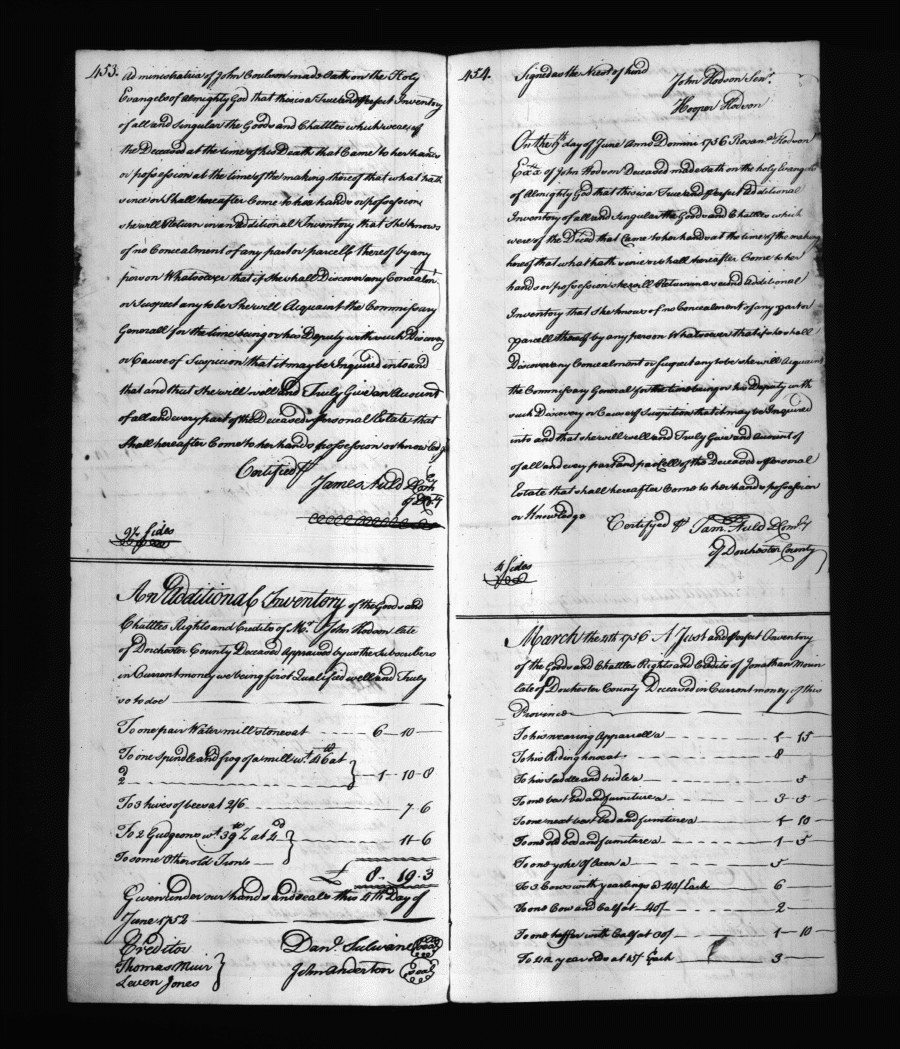 453.
Administratrix of John Coulson made Oath on the Holy
Evangels of Almighty God that this is a True and Perfect Inventory
of all and Singular the Goods and Chattles which were of
the Deceased at the time of his Death that Came to her hands
or possession at the time of the making thereof that what hath
since or Shall hereafter Come to her hands or possession
she will Return in an additional Inventory that She knows
of no Concealment of any part or parcell thereof by any
person Whatsoever that if she shall Discover any Concealmt
or Suspect any to be She will Acquaint the Commissary
Generall for the time being or his Deputy with such Discovery
or Cause of Suspicion that it may be Inquired into and
that and that She will well and Truly Give an Account
of all and every part of the Deceaseds personal Estate that
Shall hereafter Come to her hands possession or knowledge
Certified pr
James Auld D Comy
of D Cty
9½ Sides
An Additional Inventory of the Goods and
Chattles Rights and Credits of Mr. John Hodson late
of Dorchester County Deceased Appraised by us the Subscribers
in Current money we being first Qualified well and Truly
so to doe
To one pair Water mill stones at 6 - 10 -
To one Spindle and frog of a mill wt. 46 lb at } 1 - 10 - 8
To 3 hives of bees at 2/6 7 - 6
To 2 Gudgeons wt. 39 lb at 4d }
To some Other old Irons } 11 - 6
£ 8 - 19 - 3
Given under our hands and seals this 4th Day of
June 1752
Creditor
Thomas Muir }
Leven Jones }
Danl. Sulivane Seal
John Anderton Seal
454.
Signed as the Next of kind
John Hodson Senr.
Hooper Hodson
On the 9th day of June Anno Domini 1756 Roxana Hodson
Exa of John Hodson Deceased made Oath on the holy Evangels
of Almighty God that this is a True and Perfect Additional
Inventory of all and Singular the Goods and Chattles which
were of the Decd that Came to her hands at the time of the making
hereof that what hath since or shall hereafter Come to her
hands or possession she will Return in a second Additional
Inventory that She knows of no Concealment of any part or
parcell thereof by any person Whatsoever that if she shall
Discover any Concealment or Suspect any to be she will Acquaint
the Commissary General for the time being or his Deputy with
such Discovery or Cause of Suspicion that it may be Inquired
into and that she will well and Truly Give and Account of
of all and every part and parcell of the Deceaseds personal
Estate that shall hereafter Come to her hands possession
or Knowledge
Certifyed pr Jam. Auld D Comy
of Dorchester County
4 Sides
March the 4th 1756 A Just and Perfect Inventory
of the Goods and Chattles Rights and Credits of Jonathan
late of Dorchester County Deceased in Current money of this
Province
To his wearing Apparrell a 1 - 15
To his Riding horse at 8
To his Saddle and bridle a 5
To one best bed and furniture a 3 - 5
To one next best bed and furniture a 1 - 10
To one old bed and furniture a 1 - 5
To one yoke of Oxen a 5
To 3 Cows with yearlings @ 40/ Each 6
To one Cow and Calf at 40/ 2
To one heffer with Calf at 30/ 1 - 10
To 4 2 year olds at 15/ Each 3